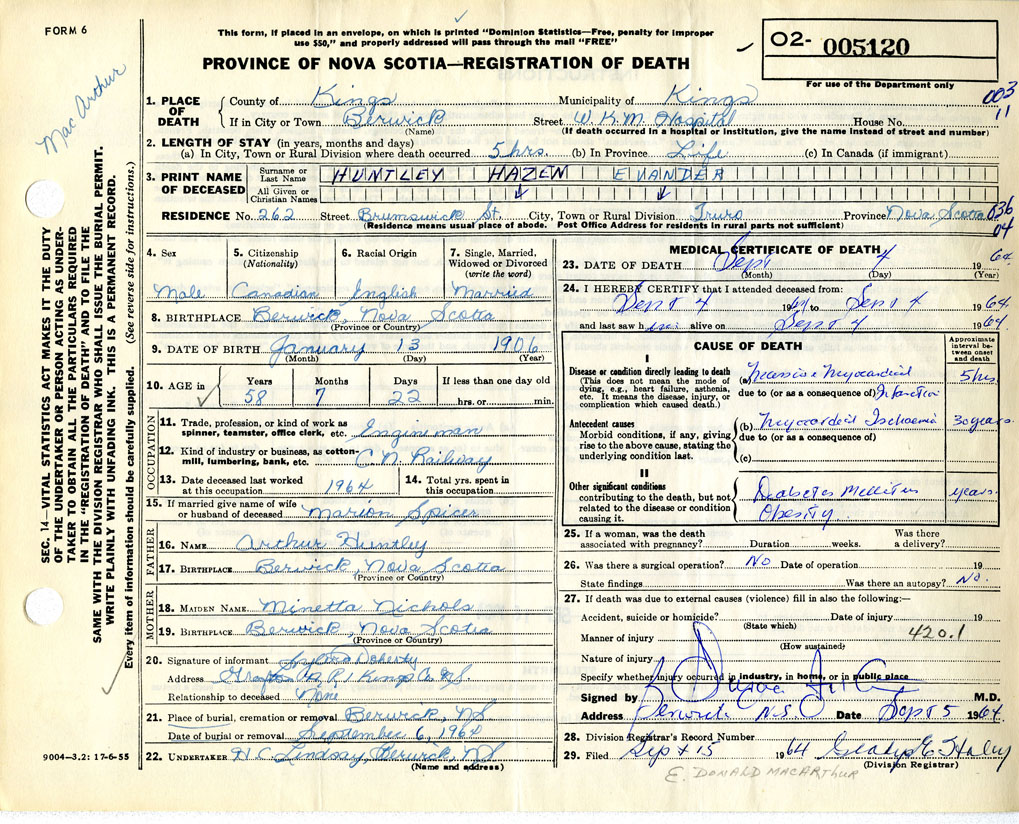 FORM 6
This form, if placed in an envelope, on which is printed "Dominion Statistics—Free, penalty for improper
use $50," and properly addressed will pass through the mail "FREE"
PROVINCE OF NOVA SCOTIA—REGISTRATION OF DEATH
02- 005120
For use of the Department only
Mac Arthur
SEC. 14—VITAL STATISTICS ACT MAKES IT THE DUTY
OF THE UNDERTAKER OR PERSON ACTING AS UNDER-
TAKER TO OBTAIN ALL THE PARTICULARS REQUIRED
IN THE "REGISTRATION OF DEATH AND TO FILE THE
SAME WITH THE DIVISION REGISTRAR WHO SHALL ISSUE THE BURIAL PERMIT.
WRITE PLAINLY WITH UNFADING INK. THIS IS A PERMANENT RECORD.
Every item of information should be carefully supplied. (See reverse side for instructions.)
1. PLACE OF DEATH County of Kings Municipality of Kings 003
If in City or Town Berwick Street W.K.M. Hospital House No. 11
(Name) (If death occurred in a hospital or institution, give the name instead of street and number)
2. LENGTH OF STAY (in years, months and days)
(a) In City, Town or Rural Division where death occurred 5 hrs. (b) In Province Life (c) In Canada (if immigrant)
3. PRINT NAME OF DECEASED Surname or Last Name HUNTLEY HAZEN EVANDER
All Given or Christian Names
RESIDENCE No. 262 Street Brunswick St. City, Town or Rural Division Truro Province Nova Scotia 036
(Residence means usual place of abode. Post Office Address for residents in rural parts not sufficient) 04
4. Sex 5. Citizenship (Nationality) 6. Racial Origin 7. Single, Married, Widowed or Divorced (write the word)
Male Canadian English Married
8. BIRTHPLACE Berwick, Nova Scotia
(Province or Country)
9. DATE OF BIRTH January 13 1906
(Month) (Day) (Year)
10. AGE in Years Months Days If less than one day old
58 7 22 hrs. or min.
OCCUPATION
11. Trade, profession, or kind of work as
spinner, teamster, office clerk, etc. Engineman
12. Kind of industry or business, as cotton-
mill, lumbering, bank, etc. C.N. Railway
13. Date deceased last worked
at this occupation 1964
14. Total yrs. spent in
this occupation
15. If married give name of wife
or husband of deceased Marion Spicer
FATHER
16. NAME Arthur Huntley
17. BIRTHPLACE Berwick, Nova Scotia
(Province or Country)
MOTHER
18. MAIDEN NAME Minetta Nichols
19. BIRTHPLACE Berwick, Nova Scotia
(Province or Country)
20. Signature of informant Doherty
Address R1 Kings Co. N.S.
Relationship to deceased None
21. Place of burial, cremation or removal Berwick, NS
Date of burial or removal September 6, 1964
22. UNDERTAKER H C Lindsay Berwick, NS
(Name and address)
9004—3.2: 17-6-55
MEDICAL CERTIFICATE OF DEATH
23. DATE OF DEATH Sept 4 1964
(Month) (Day) (Year)
24. I HEREBY CERTIFY that I attended deceased from:
Sept 4 1964 to Sept 4 1964
and last saw him alive on Sept 4 1964
CAUSE OF DEATH
Approximate interval be- tween onset and death
I
Disease or condition directly leading to death
(This does not mean the mode of
dying, e.g., heart failure, asthenia,
etc. It means the disease, injury, or
complication which caused death.)
(a) Massive Myocardial 5 hrs
due to (or as a consequence of) Infarction
Antecedent causes
Morbid conditions, if any, giving
rise to the above cause, stating the
underlying condition last.
(b) Myocardial Ischaemia 30 years
due to (or as a consequence of)
(c)
II
Other significant conditions
contributing to the death, but not
related to the disease or condition
causing it.
Diabetes Mellitus years
Obesity
25. If a woman, was the death
associated with pregnancy? Duration weeks. Was there
a delivery?
26. Was there a surgical operation? No Date of operation 19
State findings Was there an autopsy? No.
27. If death was due to external causes (violence) fill in also the following:—
Accident, suicide or homicide? Date of injury 19
(State which)
Manner of injury 420.1
(How sustained)
Nature of injury
Specify whether injury occurred in industry, in home, or in public place
Signed by M.D.
Address Berwick N.S. Date Sept 5 1964
28. Division Registrar's Record Number
29. Filed Sept 15 1964 Gladys E. Haley
(Division Registrar)
E. DONALD MACARTHUR